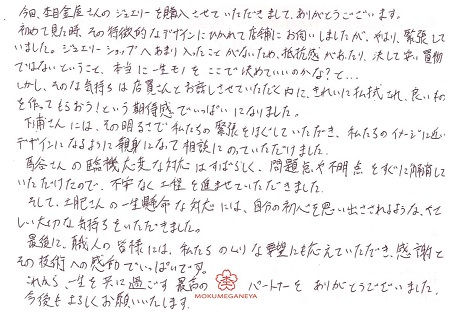 今回、杢目金屋さんのジュエリーを購入させていただきまして、ありがとうございます。
初めて見た時、その特徴的なデザインにひかれて店舗にお伺いしましたが、やはり、緊張して
いました。ジュエリーショップへあまり入ったことがないため、抵抗感があったり、決して安い買物
ではないということ、本当に一生モノをここで決めていいのかな?と…
しかし、そのような気持ちは店員さんとお話しさせていただくと内に、きれいに払拭され、良いもの
を作ってもらおう!という期待感でいっぱいになりました。
下浦さんには、その明るさで私たちの緊張をほぐしていただき、私たちのイメージに近い
デザインになるように親身になって相談にのっていただけました。
馬谷さんの臨機応変な対応はすばらしく、問題点や不明点をすぐに解消して
いただけたので、不安なく工程を進ませていただきました。
そして、土肥さんの一生懸命な対応には、自分の初心を思い出されるような、やさ
しい大切な気持ちをいただきました。
最後に、職人の皆様には、私たちのムリな要望にも応えていただき、感謝と
その技術への感動でいっぱいです。
これから、一生を共に過ごす最高のパートナーをありがとうございました。
MOKUMEGANEYA
今後もよろしくお願いいたします。